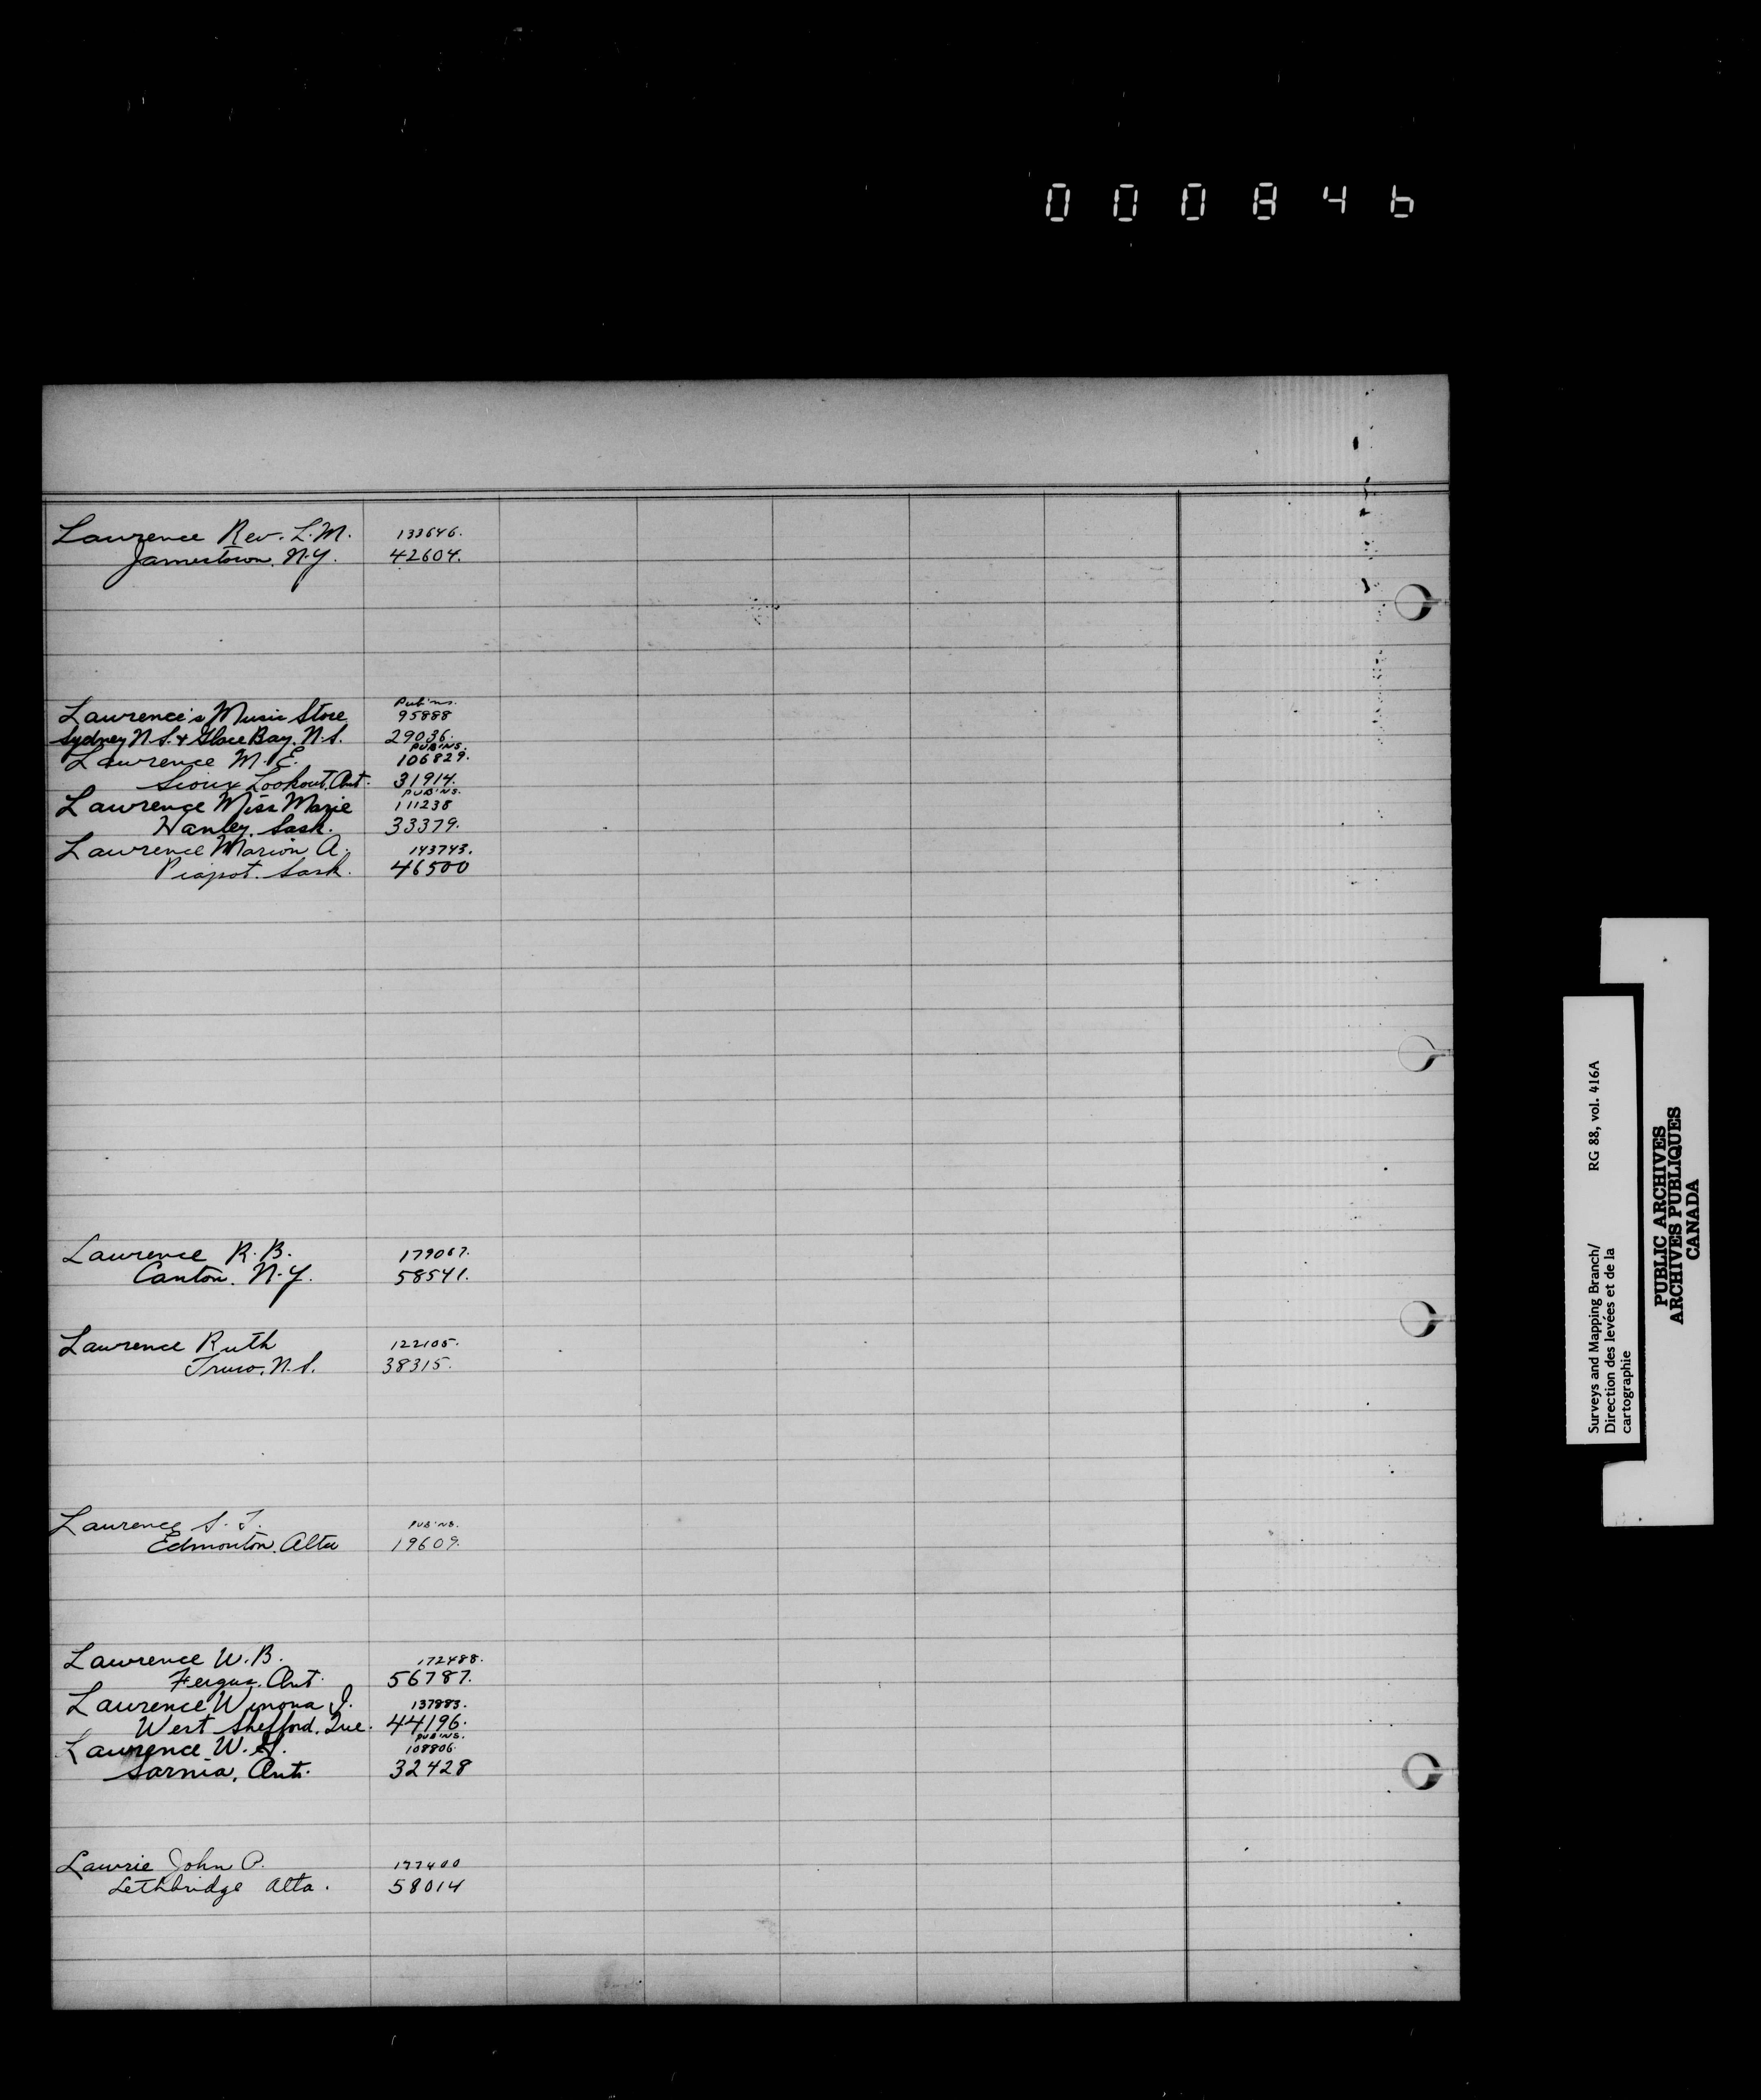 000846
Lawrence Rev. L.M. 133646.
Jamestown, N.Y. 42604.
Pub'ns.
Lawrence's Music Store 95888
Sydney N.S. & Glace Bay, N.S. 29036.
PUB'NS.
Lawrence M. E. 106829.
Sioux Lookout, Ont. 31914.
PUB'NS.
Lawrence Miss Marie 111238
Hanley, Sask. 33379.
Lawrence Marion A. 143743.
Piapot. Sask. 46500
Lawrence R. B. 179067.
Canton, N.Y. 58541.
Lawrence Ruth 122105.
Truro, N.S. 38315.
Lawrence S. T. PUB'NS.
Edmonton, Alta 19609.
Lawrence W.B. 172488.
Fergus, Ont. 56787.
Lawrence Winona J. 137883.
West Shefford, Que. 44196.
PUB'NS.
Lawrence W. H. 108806.
Sarnia, Ont. 32428
Lawrie John P. 177400
Lethbridge Alta. 58014
Surveys and Mapping Branch/ RG 88, vol. 416A
Direction des levées et de la
cartographie
PUBLIC ARCHIVES
ARCHIVES PUBLIQUES
CANADA